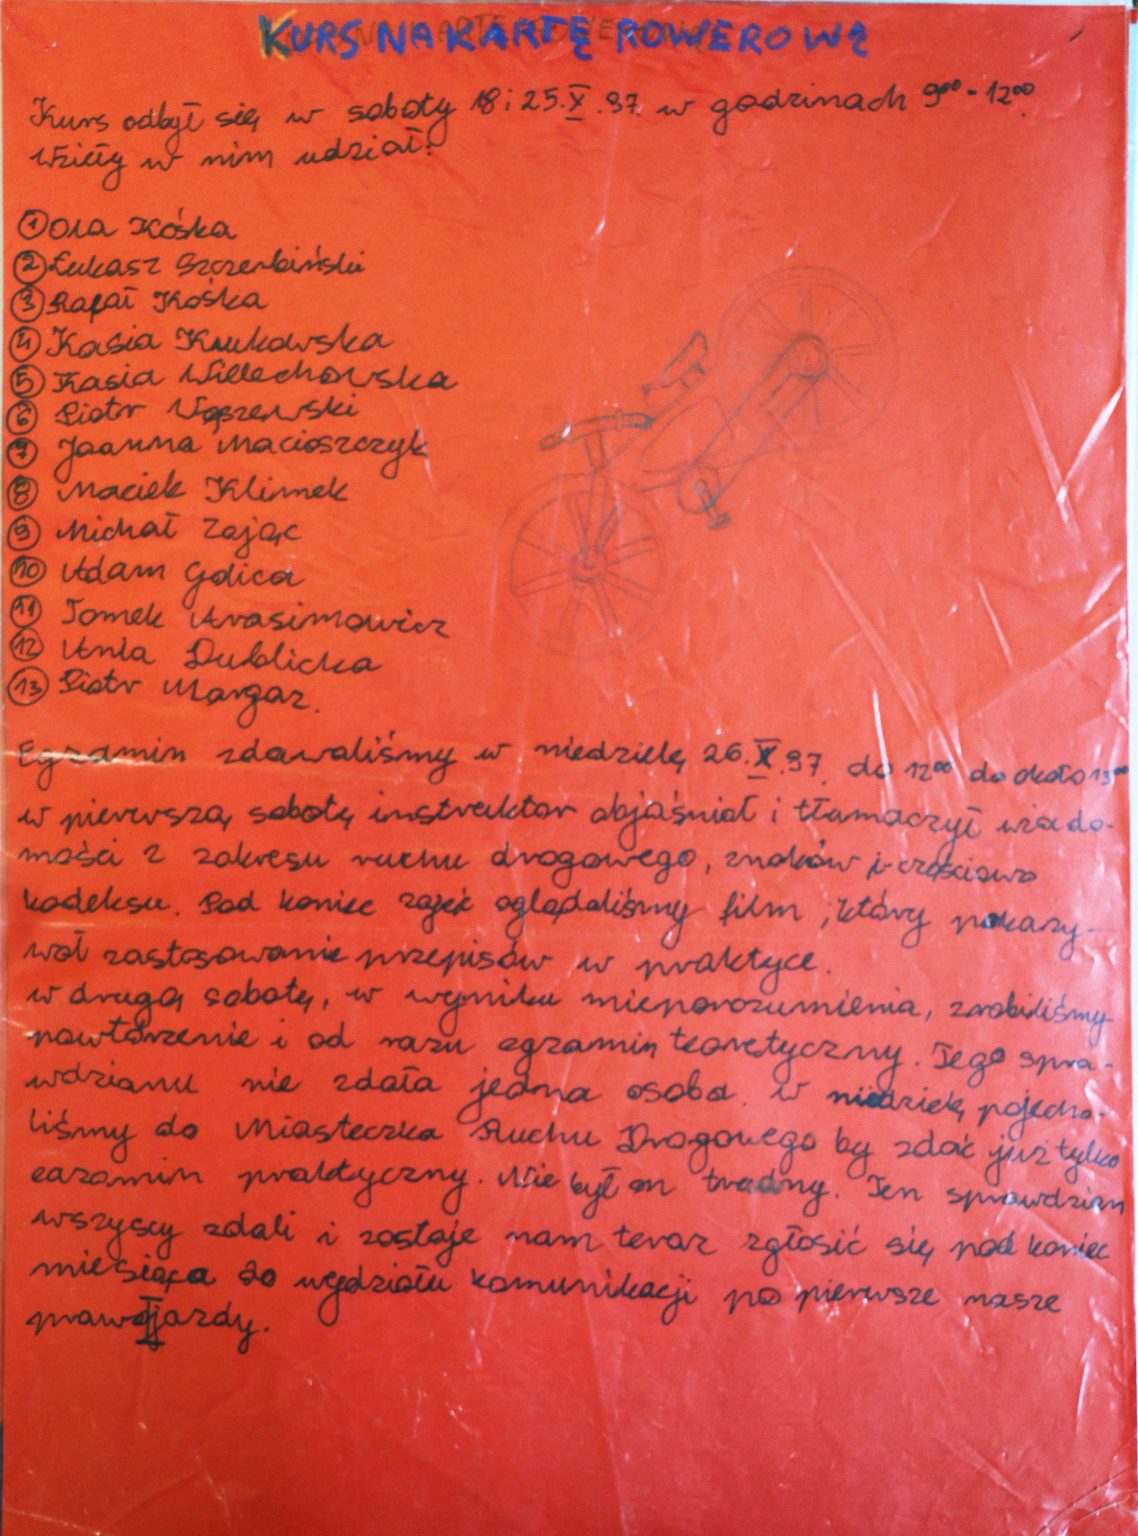 KURS NA KARTĘ ROWEROWĄ
Kurs odbył się w soboty 18 i 25.X.97. w godzinach 9⁰⁰-12⁰⁰.
Wzięły w nim udział:
① Ola Kośka
② Łukasz Szczerbiński
③ Rafał Kośka
④ Kasia Krukowska
⑤ Kasia Wielechowska
⑥ Piotr Wąszewski
⑦ Joanna Macioszczyk
⑧ Maciek Klimek
⑨ Michał Zając
⑩ Adam Golica
⑪ Tomek Arasimowicz
⑫ Ania Dublicka
⑬ Piotr Margaz.
Egzamin zdawaliśmy w niedzielę 26.X.97. do 12⁰⁰ do około 13⁰⁰
w pierwszą sobotę instruktor objaśniał i tłumaczył wiado-
mości z zakresu ruchu drogowego, znaków i częściowo
kodeksu. Pod koniec zajęć oglądaliśmy film, który pokazy-
wał zastosowanie przepisów w praktyce.
w drugą sobotę, w wyniku nieporozumienia, zrobiliśmy
powtórzenie i od razu egzamin teoretyczny. Tego spra-
wdzianu nie zdała jedna osoba. w niedzielę pojecha-
liśmy do Miasteczka Ruchu Drogowego by zdać już tylko
eazamin praktyczny. Nie był on trudny. Ten sprawdzian
wszyscy zdali i zostaje nam teraz zgłosić się pod koniec
miesiąca do wydziału komunikacji po pierwsze nasze
prawo jazdy.